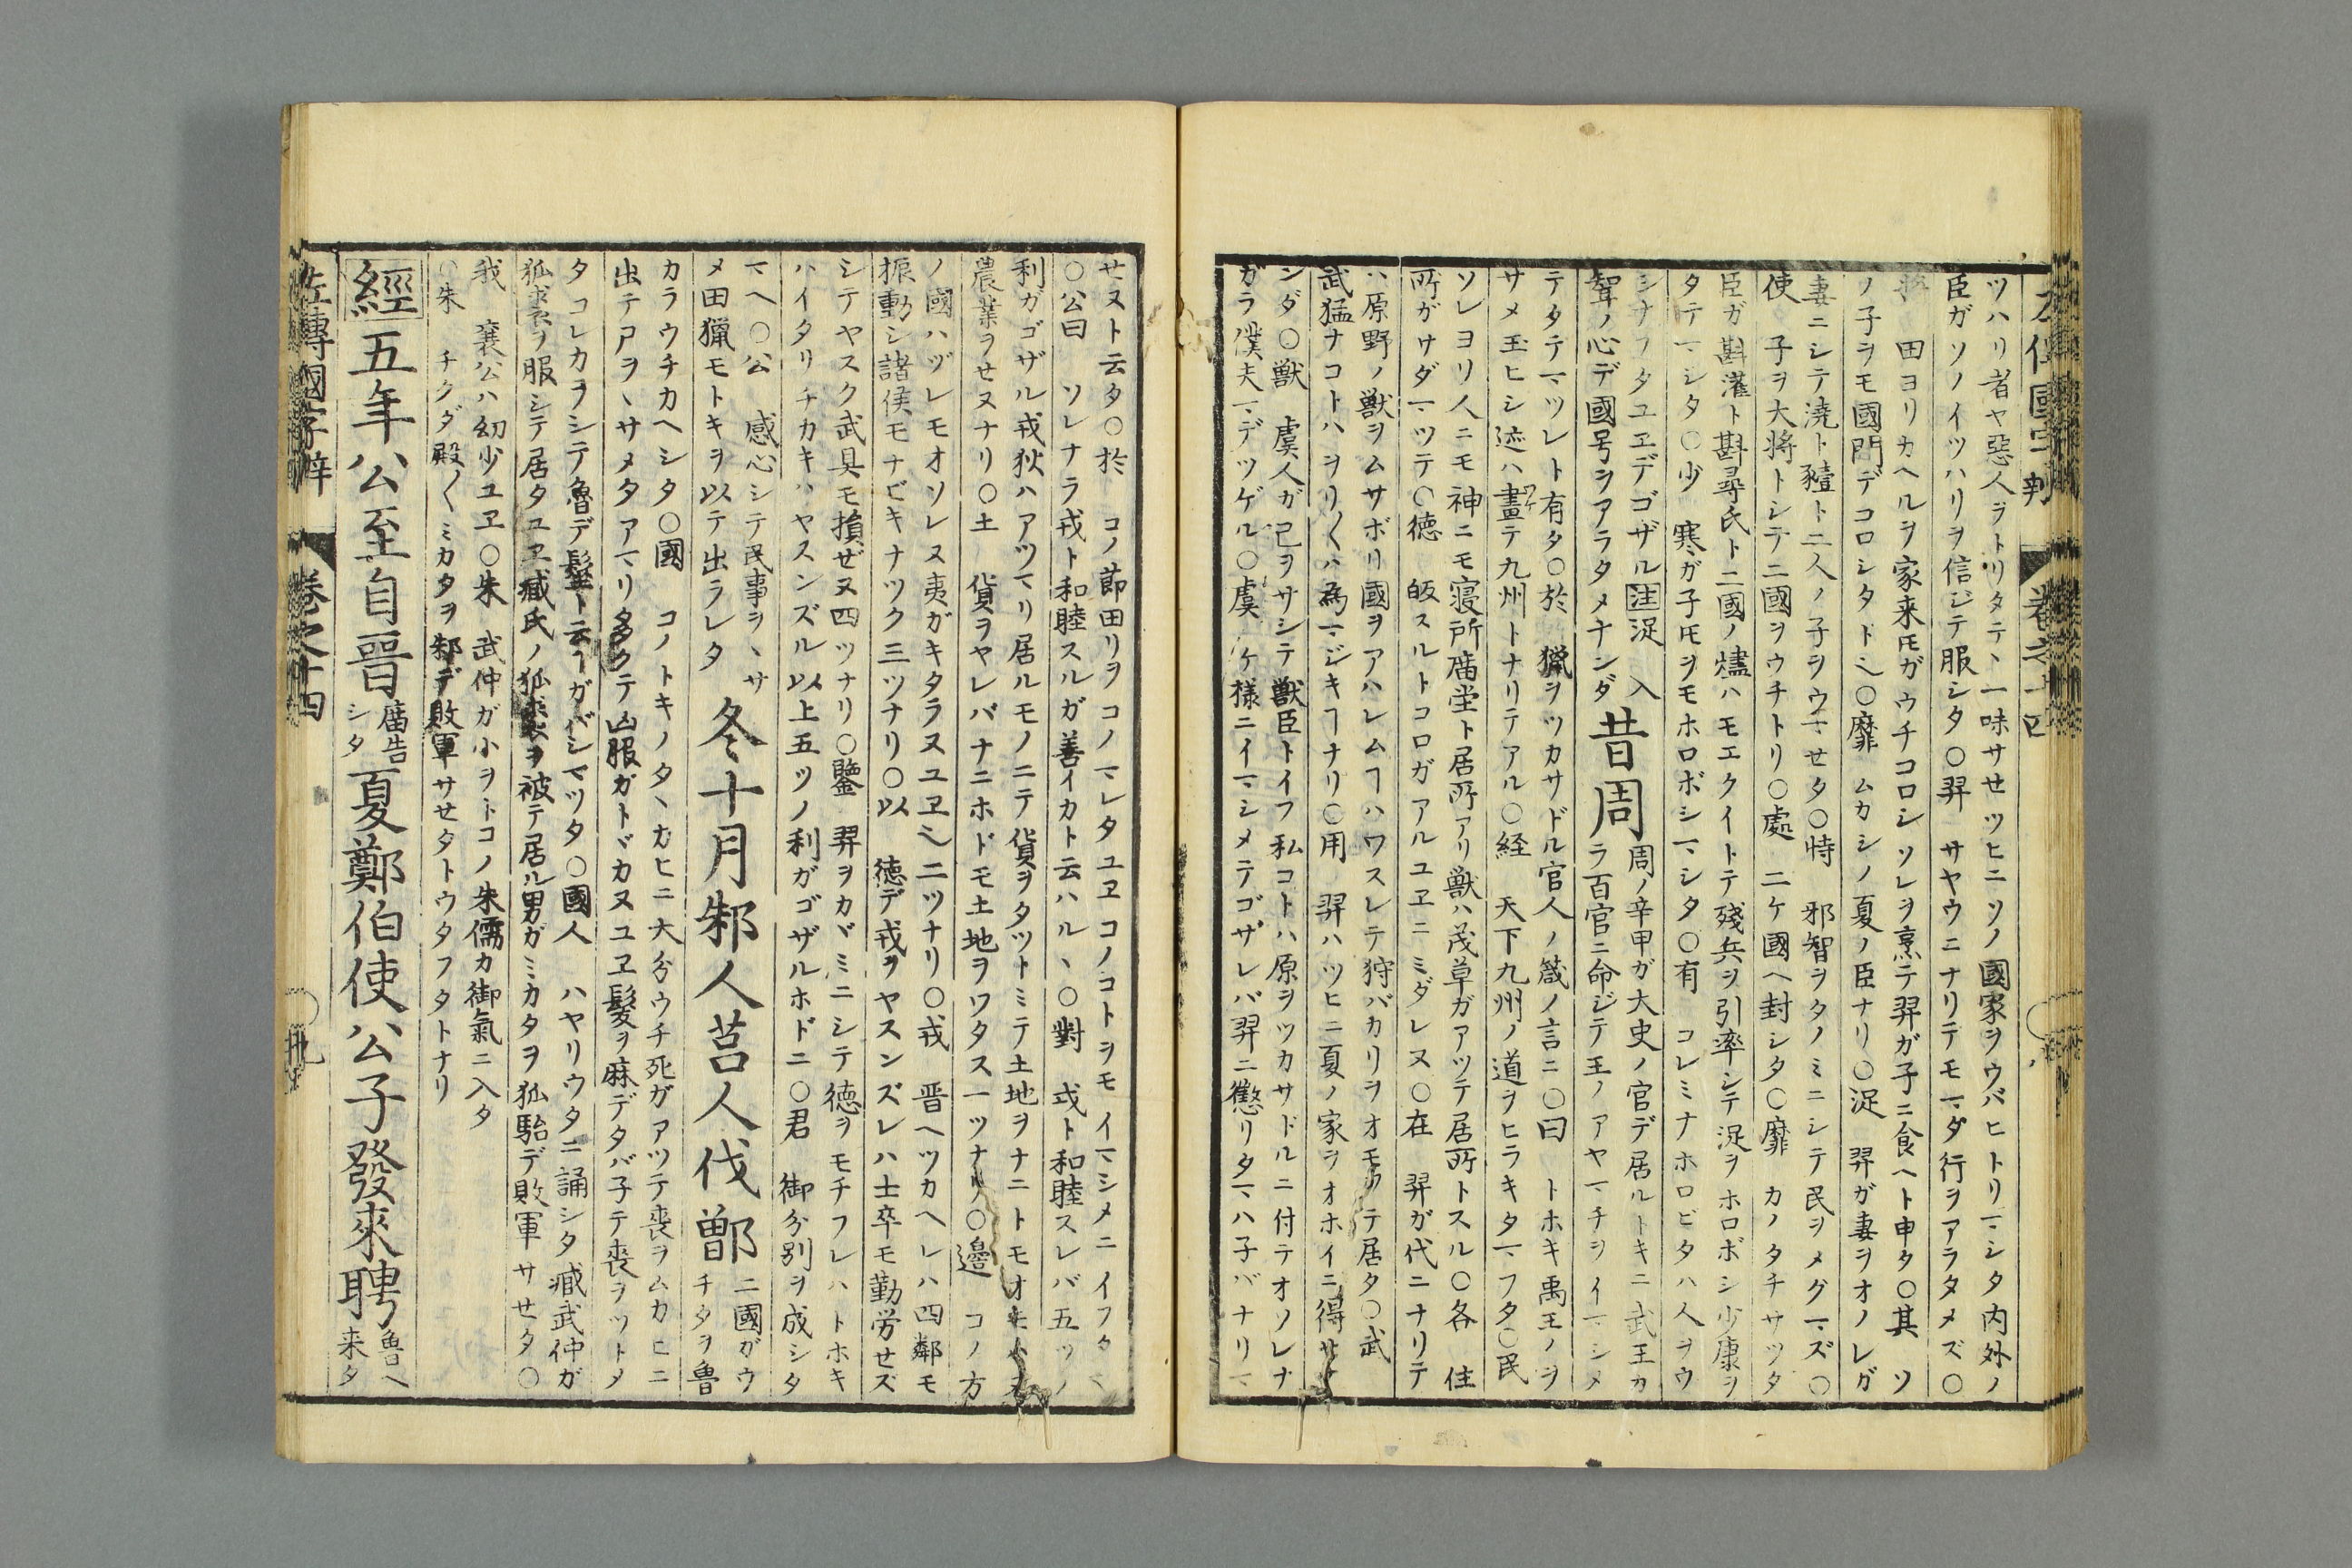 ツハリ者ヤ惡人ヲトリタテヽ一味サセツヒニソノ國家ヲウバヒトリマシタ内外ノ
臣ガソノイツハリヲ信ジテ服シタ○羿 サヤウニナリテモマダ行ヲアラタメズ○
將 田ヨリカヘルヲ家来𪜈ガウチコロシソレヲ烹テ羿ガ子ニ食ヘト申タ○其 ソ
ノ子ヲモ國門デコロシタト也○靡 ムカシノ夏ノ臣ナリ○浞 羿ガ妻ヲオノレガ
妻ニシテ澆ト豷ト二人ノ子ヲウマセタ○恃 邪智ヲタノミニシテ民ヲメグマズ○
使 子ヲ大將トシテ二國ヲウチトリ○處 二ケ國ヘ封シタ○靡 カノタチサツタ
臣ガ斟灌ト斟尋氏ト二國ノ燼ハモエクイトテ殘兵ヲ引率シテ浞ヲホロボシ少康ヲ
タテマシタ○少 寒ガ子𪜈ヲモホロボシマシタ○有 コレミナホロビタハ人ヲウ
シナフタユヱデゴザル注浞 入
聟ノ心デ國号ヲアラタメナンダ
昔周
周ノ辛甲ガ大史ノ官デ居ルトキニ武王カ
ラ百官ニ命ジテ王ノアヤマチヲイマシメ
テタテマツレト有タ○於 獵ヲツカサドル官人ノ箴ノ言ニ○曰 トホキ禹王ノヲ
サメ玉ヒシ迹ハ畫テ九州トナリテアル○経 天下九州ノ道ヲヒラキタマフタ○民
ソレヨリ人ニモ神ニモ寝所廟堂ト居所アリ獣ハ茂草ガアツテ居所トスル○各 住
所ガサダマツテ○徳 皈スルトコロガアルユヱニミダレヌ○在 羿ガ代ニナリテ
ハ原野ノ獣ヲムサボリ國ヲアハレムヿハワスレテ狩バカリヲオモフテ居タ○武
武猛ナコトハヲリ〱ハ為マジキヿナリ○用 羿ハツヒニ夏ノ家ヲオホイニ得サセ
ンダ○獣 虞人ガ己ヲサシテ獣臣トイフ私コトハ原ヲツカサドルニ付テオソレナ
ガラ僕夫マデツゲル○虞 ケ様ニイマシメテゴザレバ羿ニ懲リタマハ子バナリマ
セヌト云タ○於 コノ莭田リヲコノマレタユヱコノコトヲモイマシメニイフタ也
○公曰 ソレナラ戎ト和睦スルガ善イカト云ハルヽ○對 戎ト和睦スレバ五ツノ
利ガゴザル戎狄ハアツマリ居ルモノニテ貨ヲタツトミテ土地ヲナニトモオモハズ
農業ヲセヌナリ○土 貨ヲヤレバナニホドモ土地ヲワタス一ツナリ○邊 コノ方
ノ國ハヅレモオソレヌ夷ガキタラヌユヱ也二ツナリ○戎 晋ヘツカヘレハ四鄰モ
振動シ諸侯モナビキナツク三ツナリ○以 徳デ戎ヲヤスンズレハ士卒モ勤労セズ
シテヤスク武具モ損ぜヌ四ツナリ○鑒 羿ヲカヾミニシテ徳ヲモチフレハトホキ
ハイタリチカキハヤスンズル以上五ツノ利ガゴザルホドニ○君 御分別ヲ成シタ
マヘ○公 感心シテ民事ヲヽサ
メ田獵モトキヲ以テ出ラレタ
冬十月邾人莒人伐鄫
二國ガウ
チタヲ魯
カラウチカヘシタ○國 コノトキノタヽカヒニ大分ウチ死ガアツテ喪ヲムカヒニ
出テアヲヽサメタアマリ多クテ凶服ガトヾカヌユヱ髮ヲ麻デタバ子テ喪ヲツトメ
タコレカヲシテ魯デ髽ト云ヿガバシマツタ○國人 ハヤリウタニ誦シタ臧武仲ガ
狐裘ヲ服シテ居タユヱ臧氏ノ狐裘ヲ被テ居ル男ガミカタヲ狐駘デ敗軍サセタ○
我 襄公ハ幻少ユヱ○朱 武仲ガ小ヲトコノ朱儒カ御氣ニ入タ
○朱 チクダ殿〱ミカタヲ邾デ敗軍サセタトウタフタトナリ
經五年公至自晋
廣告
シタ
夏鄭伯使公子發來聘
魯ヘ
来タ
左傳國字辯 卷之十四 ○九